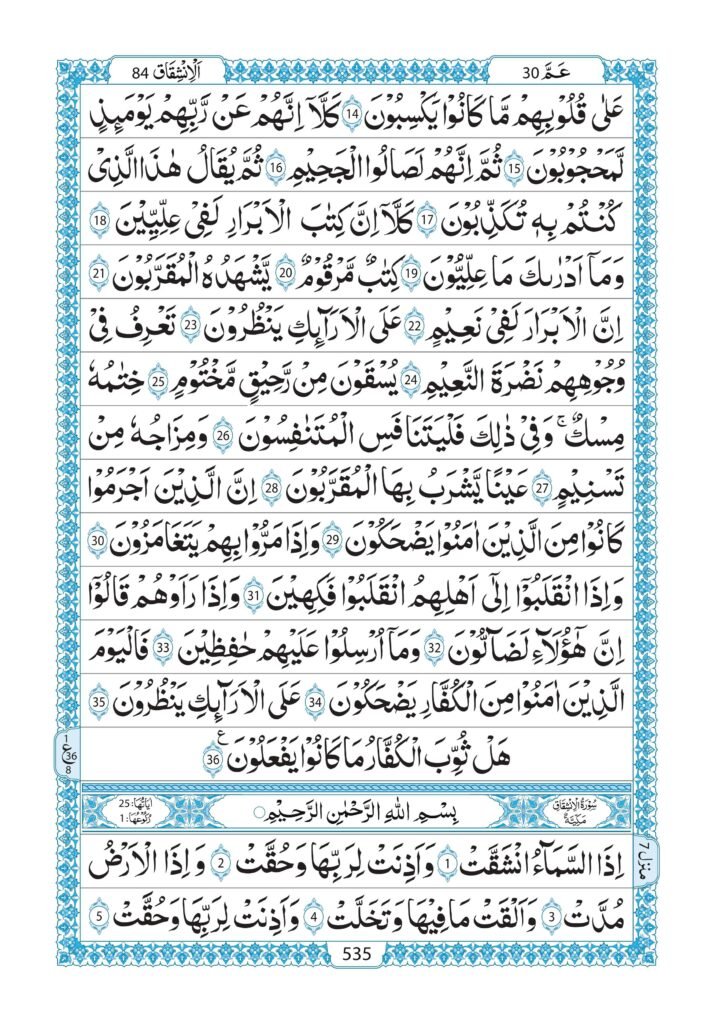 عَمَّ 30
اَلْاِنْشِقَاق 84
عَلٰى قُلُوْبِهِمْ مَّا كَانُوْا يَكْسِبُوْنَ 14 كَلَّاۤ اِنَّهُمْ عَنْ رَّبِّهِمْ يَوْمَىِٕذٍ
لَّمَحْجُوْبُوْنَ 15 ثُمَّ اِنَّهُمْ لَصَالُوا الْجَحِيْمِ 16 ثُمَّ يُقَالُ هٰذَا الَّذِیْ
كُنْتُمْ بِهٖ تُكَذِّبُوْنَ 17 كَلَّاۤ اِنَّ كِتٰبَ الْاَبْرَارِ لَفِیْ عِلِّيِّيْنَ 18
وَمَاۤ اَدْرٰىكَ مَا عِلِّيُّوْنَ 19 كِتٰبٌ مَّرْقُوْمٌ 20 يَّشْهَدُهُ الْمُقَرَّبُوْنَ 21
اِنَّ الْاَبْرَارَ لَفِیْ نَعِيْمٍ 22 عَلَى الْاَرَآىِٕكِ يَنْظُرُوْنَ 23 تَعْرِفُ فِیْ
وُجُوْهِهِمْ نَضْرَةَ النَّعِيْمِ 24 يُسْقَوْنَ مِنْ رَّحِيْقٍ مَّخْتُوْمٍ 25 خِتٰمُهٗ
مِسْكٌ ۚ وَفِیْ ذٰلِكَ فَلْيَتَنَافَسِ الْمُتَنٰفِسُوْنَ 26 وَمِزَاجُهٗ مِنْ
تَسْنِيْمٍ 27 عَيْنًا يَّشْرَبُ بِهَا الْمُقَرَّبُوْنَ 28 اِنَّ الَّذِيْنَ اَجْرَمُوْا
كَانُوْا مِنَ الَّذِيْنَ اٰمَنُوْا يَضْحَكُوْنَ 29 وَاِذَا مَرُّوْا بِهِمْ يَتَغَامَزُوْنَ 30
وَاِذَا انْقَلَبُوْۤا اِلٰۤى اَهْلِهِمُ انْقَلَبُوْا فَكِهِيْنَ 31 وَاِذَا رَاَوْهُمْ قَالُوْۤا
اِنَّ هٰۤؤُلَآءِ لَضَآلُّوْنَ 32 وَمَاۤ اُرْسِلُوْا عَلَيْهِمْ حٰفِظِيْنَ 33 فَالْيَوْمَ
الَّذِيْنَ اٰمَنُوْا مِنَ الْكُفَّارِ يَضْحَكُوْنَ 34 عَلَى الْاَرَآىِٕكِ يَنْظُرُوْنَ 35
هَلْ ثُوِّبَ الْكُفَّارُ مَا كَانُوْا يَفْعَلُوْنَ 36 ع
1
ع 36
8
سُوْرَةُ الْاِنْشِقَاقِ
مَكِّيَّةٌ
بِسْمِ اللهِ الرَّحْمٰنِ الرَّحِيْمِ
اٰيَاتُهَا: 25
رُكُوْعُهَا: 1
اِذَا السَّمَآءُ انْشَقَّتْ 1 وَاَذِنَتْ لِرَبِّهَا وَحُقَّتْ 2 وَاِذَا الْاَرْضُ
مُدَّتْ 3 وَاَلْقَتْ مَا فِيْهَا وَتَخَلَّتْ 4 وَاَذِنَتْ لِرَبِّهَا وَحُقَّتْ 5
منزل 7
535